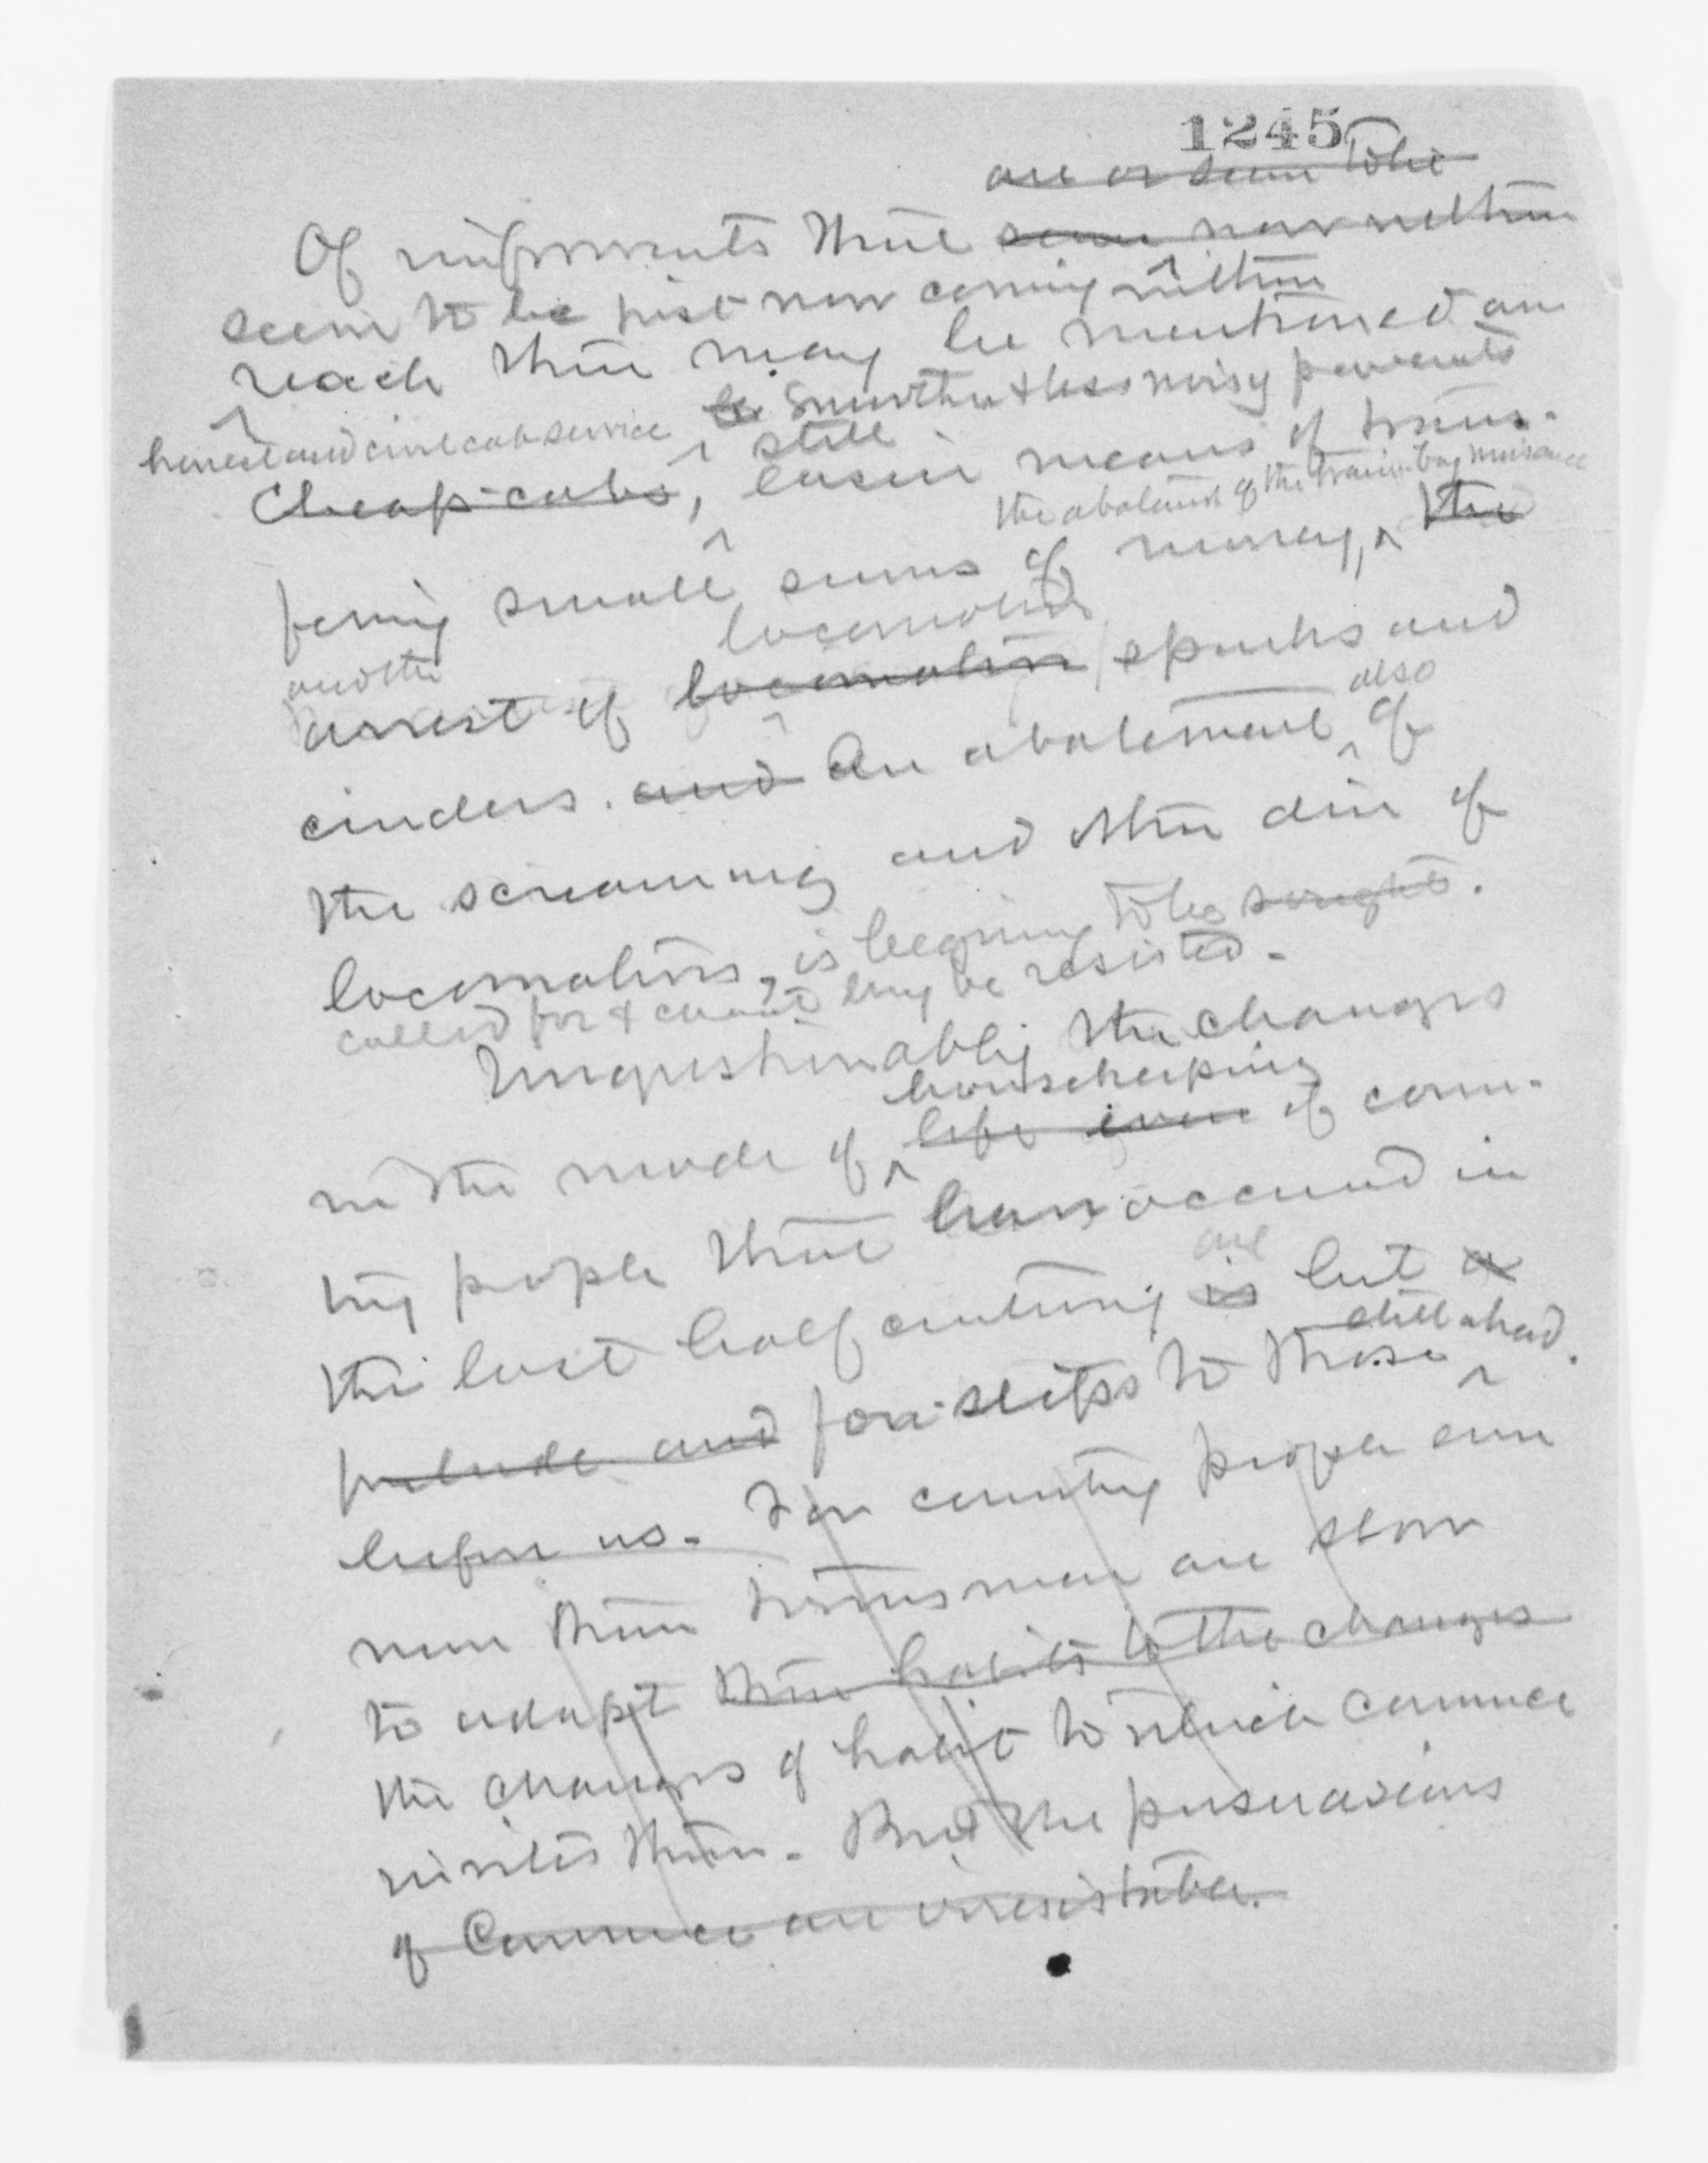 1245
are or seem to be
Of improvements that seem now within
seem to be just now coming within
reach there may be mentioned an
honest and civil cab service smoother & less noisy pavements
Cheap cabs, still easier means of trans-
the abatement of the train-boy nuisance
fering small sums of money, the
and the locomotive
arrest of locomotive sparks and
also
cinders. and An abatement of
the screaming and other din of
locomotives, is begining to be sought.
called for & cannot long be resisted.
Unquestionably the changes
housekeeping
in the mode of life even of coun-
try people that have occurred in
are
the last half century is but a
still ahead.
prelude and fore-steps to those
before us. For country people even
more than townsmen are slow
to adapt their habits to the changes
the changes of habit to which commerce
invites them. But the persuasions
of Commerce are irresistable.